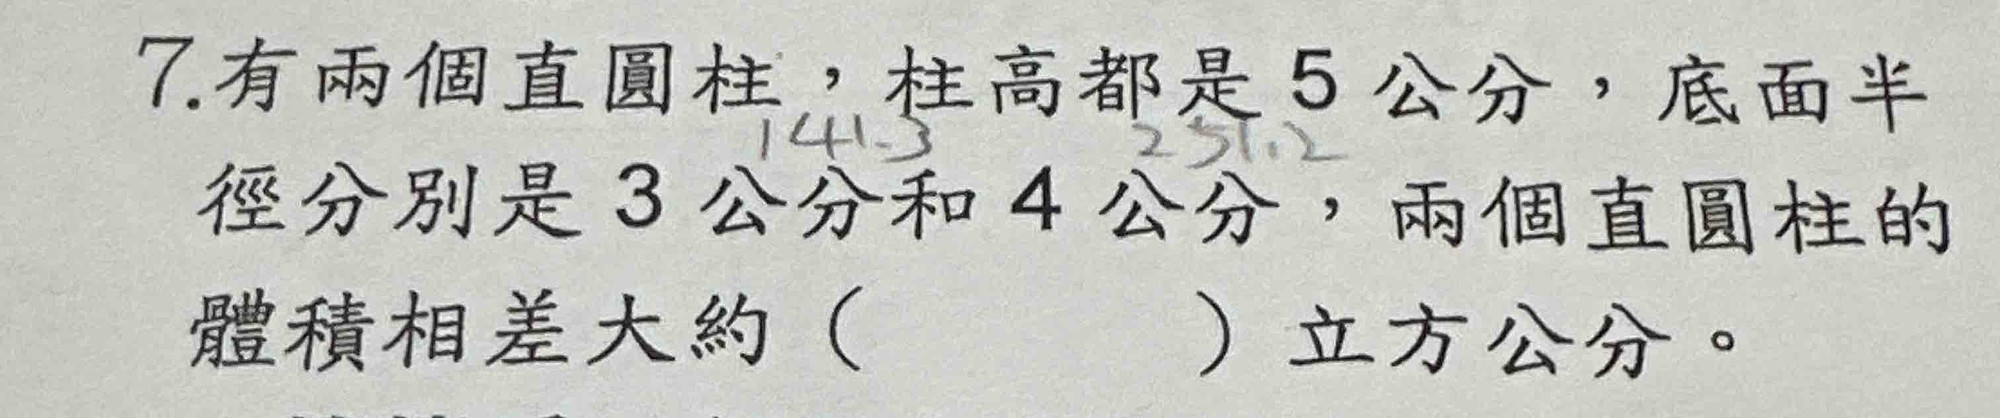 7.有兩個直圓柱，柱高都是5公分，底面半
141.3 251.2
徑分別是3公分和4公分，兩個直圓柱的
體積相差大約（ ）立方公分。